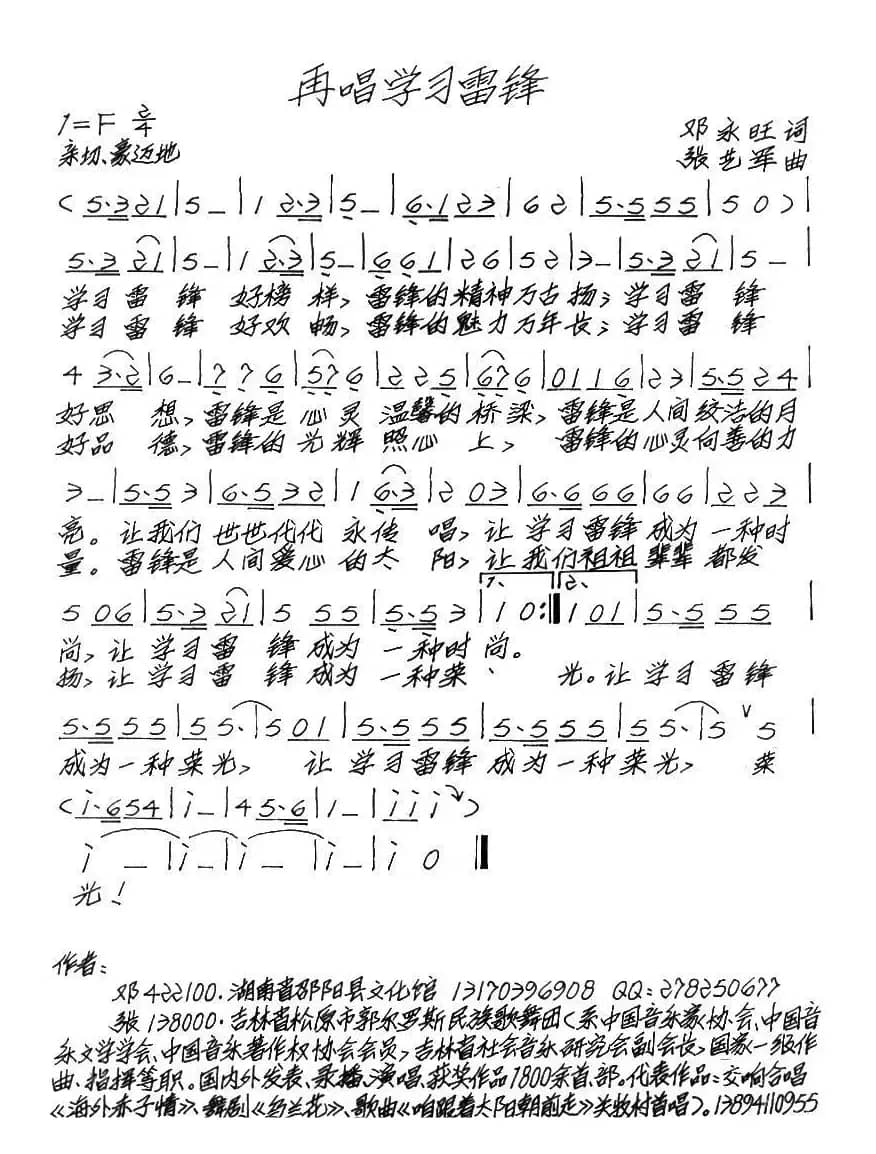 再唱学习雷锋
1=F 2/4
邓永旺 词
亲切、豪迈地
张艺军 曲
( 5·3 2 1 | 5 — | 1 2·3 | 5 — | 6·1 2 3 | 6 2 | 5·5 5 5 | 5 0 ) |
5·3 2 1 | 5 — | 1 2·3 | 5 — | 6 6 1 | 2 6 | 5 2 | 3 — | 5·3 2 1 | 5 — |
学习雷 锋 好榜 样, 雷锋的精神万古扬; 学习雷 锋
学习雷 锋 好欢 畅, 雷锋的魅力万年长; 学习雷 锋
4 3·2 | 6 — | 7 7 6 | 5 7 6 | 2 2 5 | 6 7 6 | 0 1 1 6 | 2 3 | 5·5 2 4 |
好思 想, 雷锋是 心灵 温馨的 桥梁, 雷锋是人间皎洁的月
好品 德, 雷锋的 光辉 照心 上, 雷锋的心灵向善的力
3 — | 5·5 3 | 6·5 3 2 | 1 6·3 | 2 0 3 | 6·6 6 6 | 6 6 | 2 2 3 |
亮。让我们 世世代代 永传 唱, 让 学习雷锋 成为 一种时
量。雷锋是 人间爱心 的太 阳, 让 我们祖祖 辈辈 都发
5 0 6 | 5·3 2 1 | 5 5 5 | 5·5 3 | 1. 1 0 :‖ 2. 1 0 1 | 5·5 5 5 |
尚, 让 学习雷 锋 成为 一种时 尚。
扬, 让 学习雷 锋 成为 一种荣、 光。让 学习 雷锋
5·5 5 5 | 5 5· | 5 0 1 | 5·5 5 5 | 5·5 5 5 | 5 5· | 5 ∨ 5 |
成为一种荣光, 让 学习雷锋 成为一种荣光, 荣
( i·6 5 4 | i — | 4 5·6 | 1 — | i i i )
i — | i — | i — | i — | i 0 ‖
光!
作者:
邓422100·湖南省邵阳县文化馆 13170396908 QQ:278250677
张138000·吉林省松原市郭尔罗斯民族歌舞团(系中国音乐家协会、中国音
乐文学学会、中国音乐著作权协会会员,吉林省社会音乐研究会副会长,国家一级作
曲、指挥等职。国内外发表、录播、演唱、获奖作品1800余首、部。代表作品:交响合唱
《海外赤子情》、舞剧《乌兰花》、歌曲《咱跟着太阳朝前走》关牧村首唱)。13894110955